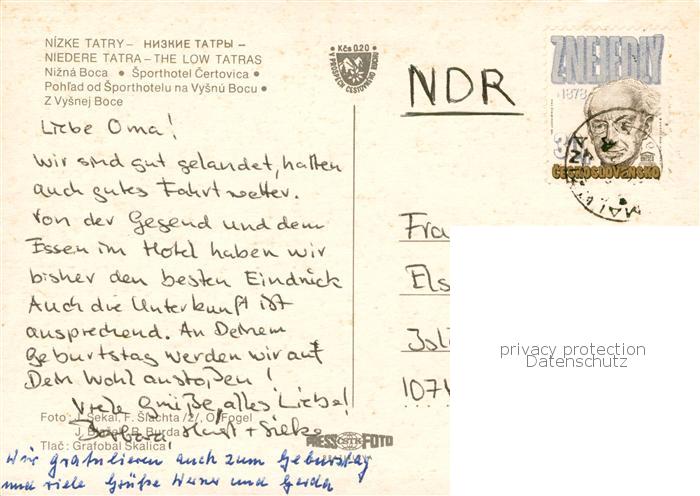 NÍZKE TATRY – НИЗКИЕ ТАТРЫ –
NIEDERE TATRA – THE LOW TATRAS
Nižná Boca • Športhotel Čertovica •
Pohľad od Športhotelu na Vyšnú Bocu •
Z Vyšnej Boce
Kčs 0.20
V PROSPECH CESTOVNÉHO RUCHU
NDR
Z. NEJEDLÝ
1878
ČESKOSLOVENSKO
Liebe Oma!
Wir sind gut gelandet, hatten
auch gutes Fahrtwetter.
Von der Gegend und dem
Essen im Hotel haben wir
bisher den besten Eindruck
Auch die Unterkunft ist
ansprechend. An Deinem
Geburtstag werden wir auf
Dein Wohl anstoßen!
Viele Grüße, alles Liebe!
Barbara, Horst + Silke
Foto: J. Sekal, F. Šlachta /2/, O. Fogel
J. B. Burda
Tlač: Grafobal Skalica
PRESS ČSTK FOTO
Wir gratulieren auch zum Geburtstag
und viele Grüße Werner und Gerda
Fra
Els
107
privacy protection
Datenschutz